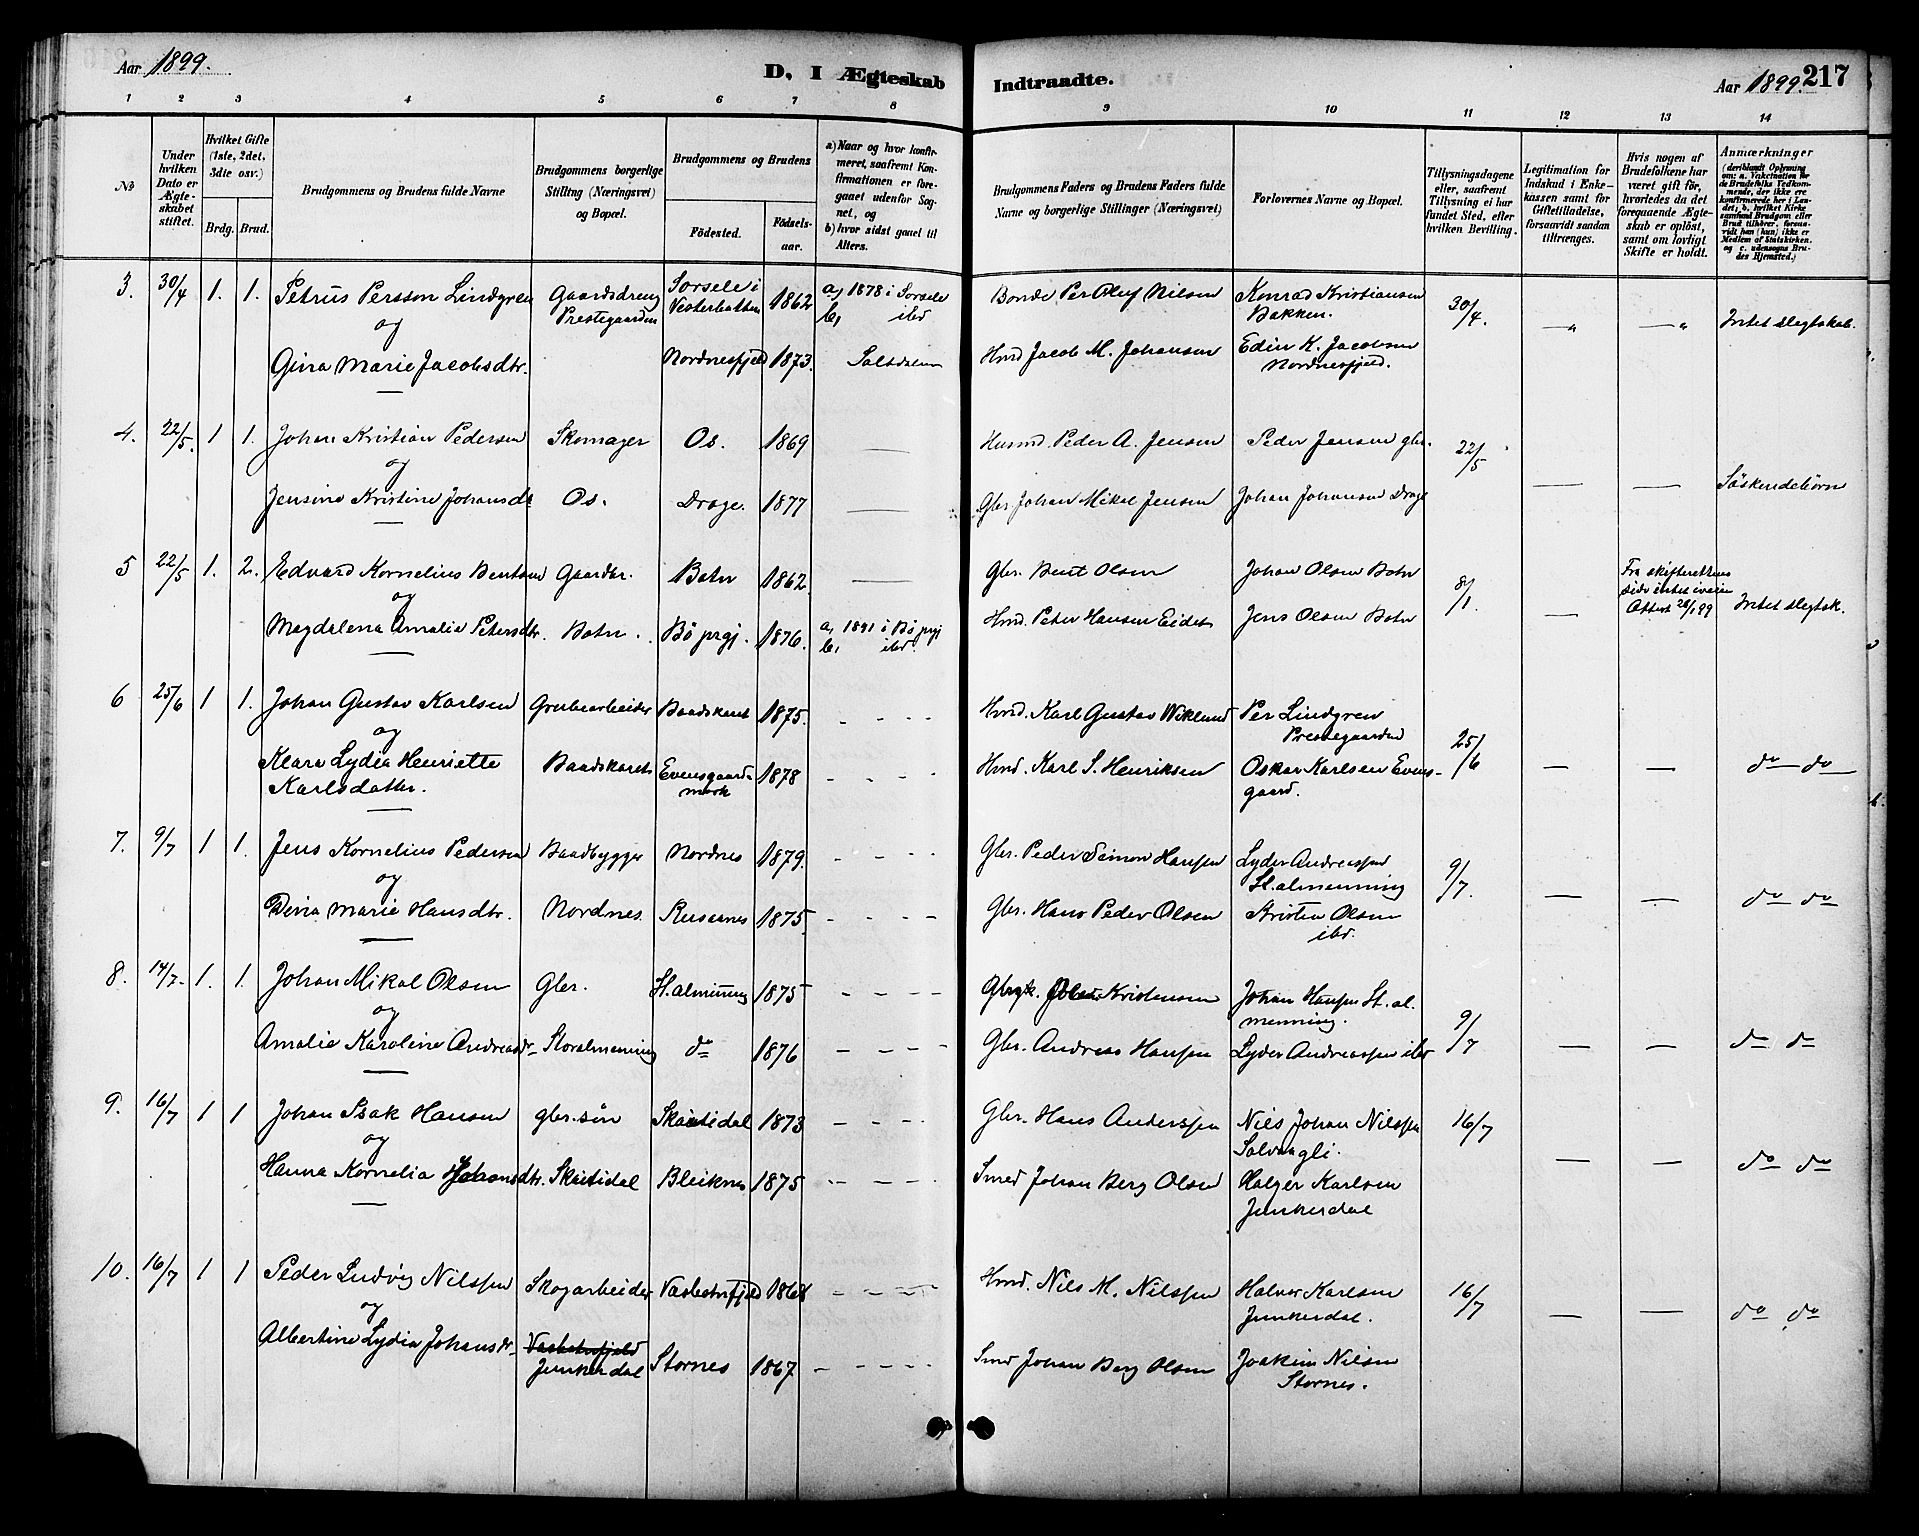 Aar 1899.
D. I Ægteskab
Indtraadte.
Aar 1899. 217
1 2 3 4 5 6 7 8 9 10 11 12 13 14
№
Under hvilken Dato er Ægteskabet stiftet.
Hvilket Gifte (1ste, 2det, 3die osv.)
Brdg. Brud.
Brudgommens og Brudens fulde Navne
Brudgommens borgerlige Stilling (Næringsvei) og Bopæl.
Brudgommens og Brudens
Fødested.
Fødselsaar.
a) Naar og hvor konfirmeret, saafremt Konfirmationen er foregaaet udenfor Sognet, og
b) hvor sidst gaaet til Alters.
Brudgommens Faders og Brudens Faders fulde Navne og borgerlige Stillinger (Næringsvei)
Forlovernes Navne og Bopæl.
Tillysningsdagene eller, saafremt Tillysning ei har fundet Sted, efter hvilken Bevilling.
Legitimation for Indskud i Enkekassen samt for Giftetilladelse, forsaavidt saadan tiltrænges.
Hvis nogen af Brudefolkene har været gift før, hvorledes da det foregaaende Ægteskab er opløst, samt om lovligt Skifte er holdt.
Anmærkninger
(deriblandt Oplysning om: a. Vakcination for de Brudefolks Vedkommende, der ikke ere konfirmerede her i Landet, b. hvilket Kirkesamfund Brudgom eller Brud tilhører, forsaavidt han (hun) ikke er Medlem af Statskirken, og c. udensogns Brudes Hjemsted.)
3. 30/4 1. 1. Petrus Persson Lindgren Gaardsdreng Prestegaarden Sorsele i Vesterbotten 1862 a, 1878 i Sorsele b, ibd Bonde Per Olof Nilsen Konrad Kristiansen Bakken. 30/4. — " — " Intet slegtskab.
og
Gina Marie Jacobsdtr. Nordnesfjeld 1873. Saltdalen Hmd Jacob M. Johansen Edin K. Jacobsen Nordnesfjeld.
4. 22/5. 1 1. Johan Kristian Pedersen Skomager Os. 1869 — Husmd. Peder A. Jensen Peder Jensen gbr. 22/5
og
Jensine Kristine Johansdt Os. Drage. 1877 — Gbr. Johan Mikal Jensen Johan Johansen Drage — — Söskendebörn
5 22/5 1. 2. Edvard Kornelius Bentsen Gaardbr. Botn 1862 — Gbr. Bent Olsen Johan Olsen Botn 8/1. — Fra skifterettens side intet iveien Attest 28/1 99 Intet slegtsk.
og
Magdalena Amalia Petersdtr. Botn. Bö prgj. 1876. a, 1891 i Bö prgj b, ibd. Hmd. Peter Hansen Eidet Jens Olsen Botn
6 25/6 1 1. Johan Gustav Karlsen Grubearbeider Baadskaret 1875. - - - - Hmd. Karl Gustav Wiklund Per Lindgren Prestegaarden 25/6 — — do do
og
Klara Lydia Henriette Karlsdatter. Baadskaret Evensgaardmark 1878 - - - - Hmd. Karl S. Henriksen Oskar Karlsen Evensgaard.
7. 9/7 1 1. Jens Kornelius Pedersen Baadbygger Nordnes 1879. - - - - Gbr. Peder Simon Hansen Lyder Andreassen St. almenning 9/7. — — do do
og
Dina Marie Hansdtr. Nordnes. Rusaanes 1875. - - - - Gbr. Hans Peder Olsen Kristen Olsen ibd.
8. 14/7. 1. 1. Johan Mikal Olsen Gbr. St. almening 1875 - - - - Kristensen Johan Hansen St. almenning. 9/7 — — do do
og
Amalie Karoline Andreasdr. Storalmenning do 1876 - - - - Gbr. Andreas Hansen Lyder Andreassen ibd
9. 16/7 1 1 Johan Isak Hansen gbr. sön Skaitidal 1873 - - - - Gbr. Hans Anderssen Nils Johan Nilssen Solvaagli. 16/7 — — do do
og
Hanna Kornelia Johansdtr. Skaitidal Bleiknes 1875 - - - - Smed Johan Berg Olsen Holger Karlsen Junkerdal
10. 16/7 1 1 Peder Ludvig Nilssen Skogarbeider Vasbotnfjeld 1868 - - - - Hmd. Nils M. Nilssen Halvor Karlsen Junkerdal. 16/7 — — do do
og
Albertine Lydia Johansdr. Vasbotnfjeld Junkerdal Stornes 1867 - - - - Smd Johan Berg Olsen Joakim Nilsen Stornes.